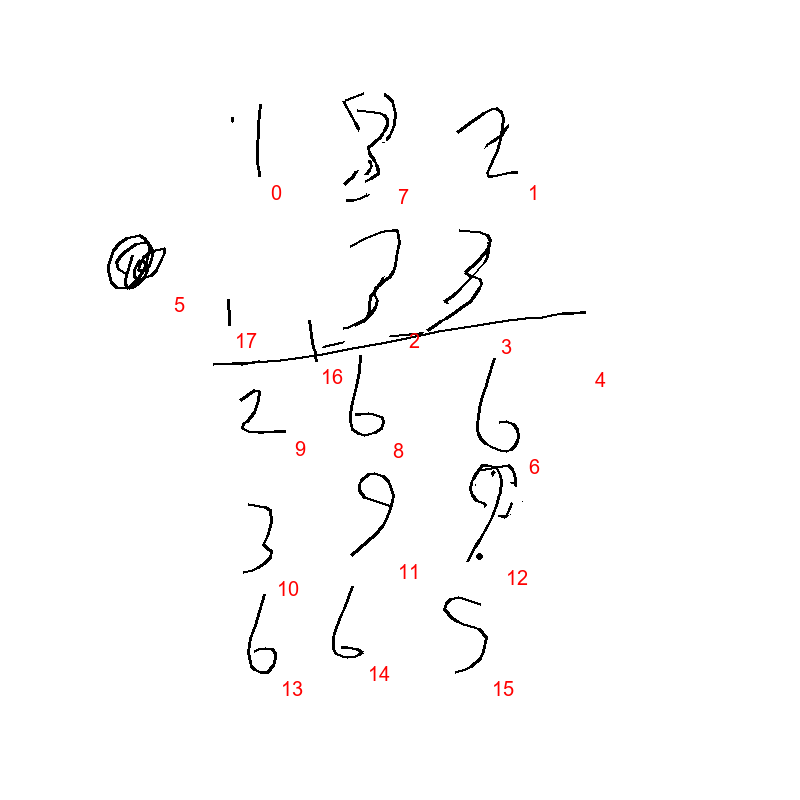 1 3 2
0 7 1
3 3
5
1 1
17 2 3
16 4
2 6 6
9 8 6
3 9 9
10 11 12
6 6 5
13 14 15